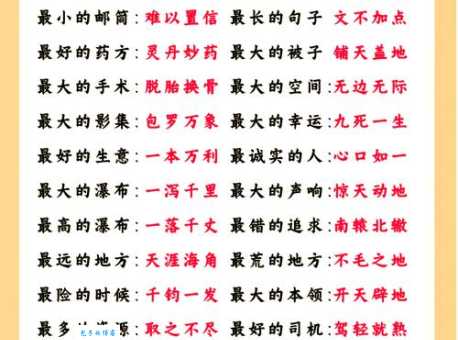 最小的邮筒:难以置信 最长的句子 文不加点
最好的药方:灵丹妙药 最大的被子 铺天盖地
最大的手术:脱胎换骨 最大的空间:无边无际
最大的影集:包罗万象 最大的幸运:九死一生
最好的生意:一本万利 最诚实的人:心口如一
最大的瀑布:一泻千里 最大的声响:惊天动地
最高的瀑布:一落千丈 最错的追求:南辕北辙
最远的地方:天涯海角 最荒的地方:不毛之地
最险的时候:千钧一发 最大的本领:开天辟地
最多 源:取之不尽 最好的司机:驾轻就熟